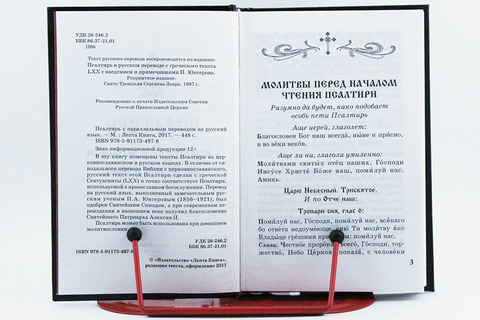 УДК 26-246.2
ББК 86.37-21.01
П86
Текст русского перевода воспроизводится по изданию:
Псалтирь в русском переводе с греческого текста
LXX с введением и примечаниями П. Юнгерова.
Репринтное издание.
Свято-Троицкая Сергиева Лавра. 1997 г.
Рекомендовано к печати Издательским Советом
Русской Православной Церкви
Псалтирь с параллельным переводом на русский
язык. — М. : Лента Книга, 2017. — 448 с.
ISBN 978-5-91173-497-8
Знак информационной продукции 12+
В эту книгу помещены тексты Псалтири на цер-
ковнославянском и русском языках. В отличие от си-
нодального перевода Библии с церковнославянского,
русский текст этой Псалтири сделан с греческой
Септуагинты (LXX) и точно соответствует Псалтири,
используемой в православном богослужении. Перевод
на русский язык, выполненный замечательным рус-
ским ученым П.А. Юнгеровым (1856–1921), был
одобрен Святейшим Синодом, а при современном пе-
реиздании в нынешнем веке получил благословение
Святейшего Патриарха Алексия II.
Псалтирь может быть использована при домашнем
молитвословии.
УДК 26-246.2
ББК 86.37-21.01
ISBN 978-5-91173-497-8
© «Издательство «Лента Книга»,
редакция текста, оформление 2017
МОЛИТВЫ ПЕРЕД НАЧАЛОМ
ЧТЕНИЯ ПСАЛТИРИ
Разумно да будет, како подобает
особь пети Псалтирь
Аще иерей, глаголет:
Благословен Бог наш всегда, ны́не и при́сно,
и во ве́ки веко́в.
Аще ли ни, глаголи умиленно:
Моли́твами святы́х оте́ц на́ших, Го́споди
Иису́се Христе́ Бо́же наш, поми́луй нас.
Ами́нь.
Царю Небесный. Трисвятое.
И по Отче наш:
Тропари сия, глас 6:
Поми́луй нас, Го́споди, поми́луй нас, вся́каго
бо отве́та недоуме́юще, сию́ Ти моли́тву я́ко
Влады́це гре́шнии прино́сим: поми́луй нас.
Слава: Честно́е проро́ка Твоего́, Го́споди, тор-
жество́, Не́бо Це́рковь показа́, с челове́ки
3